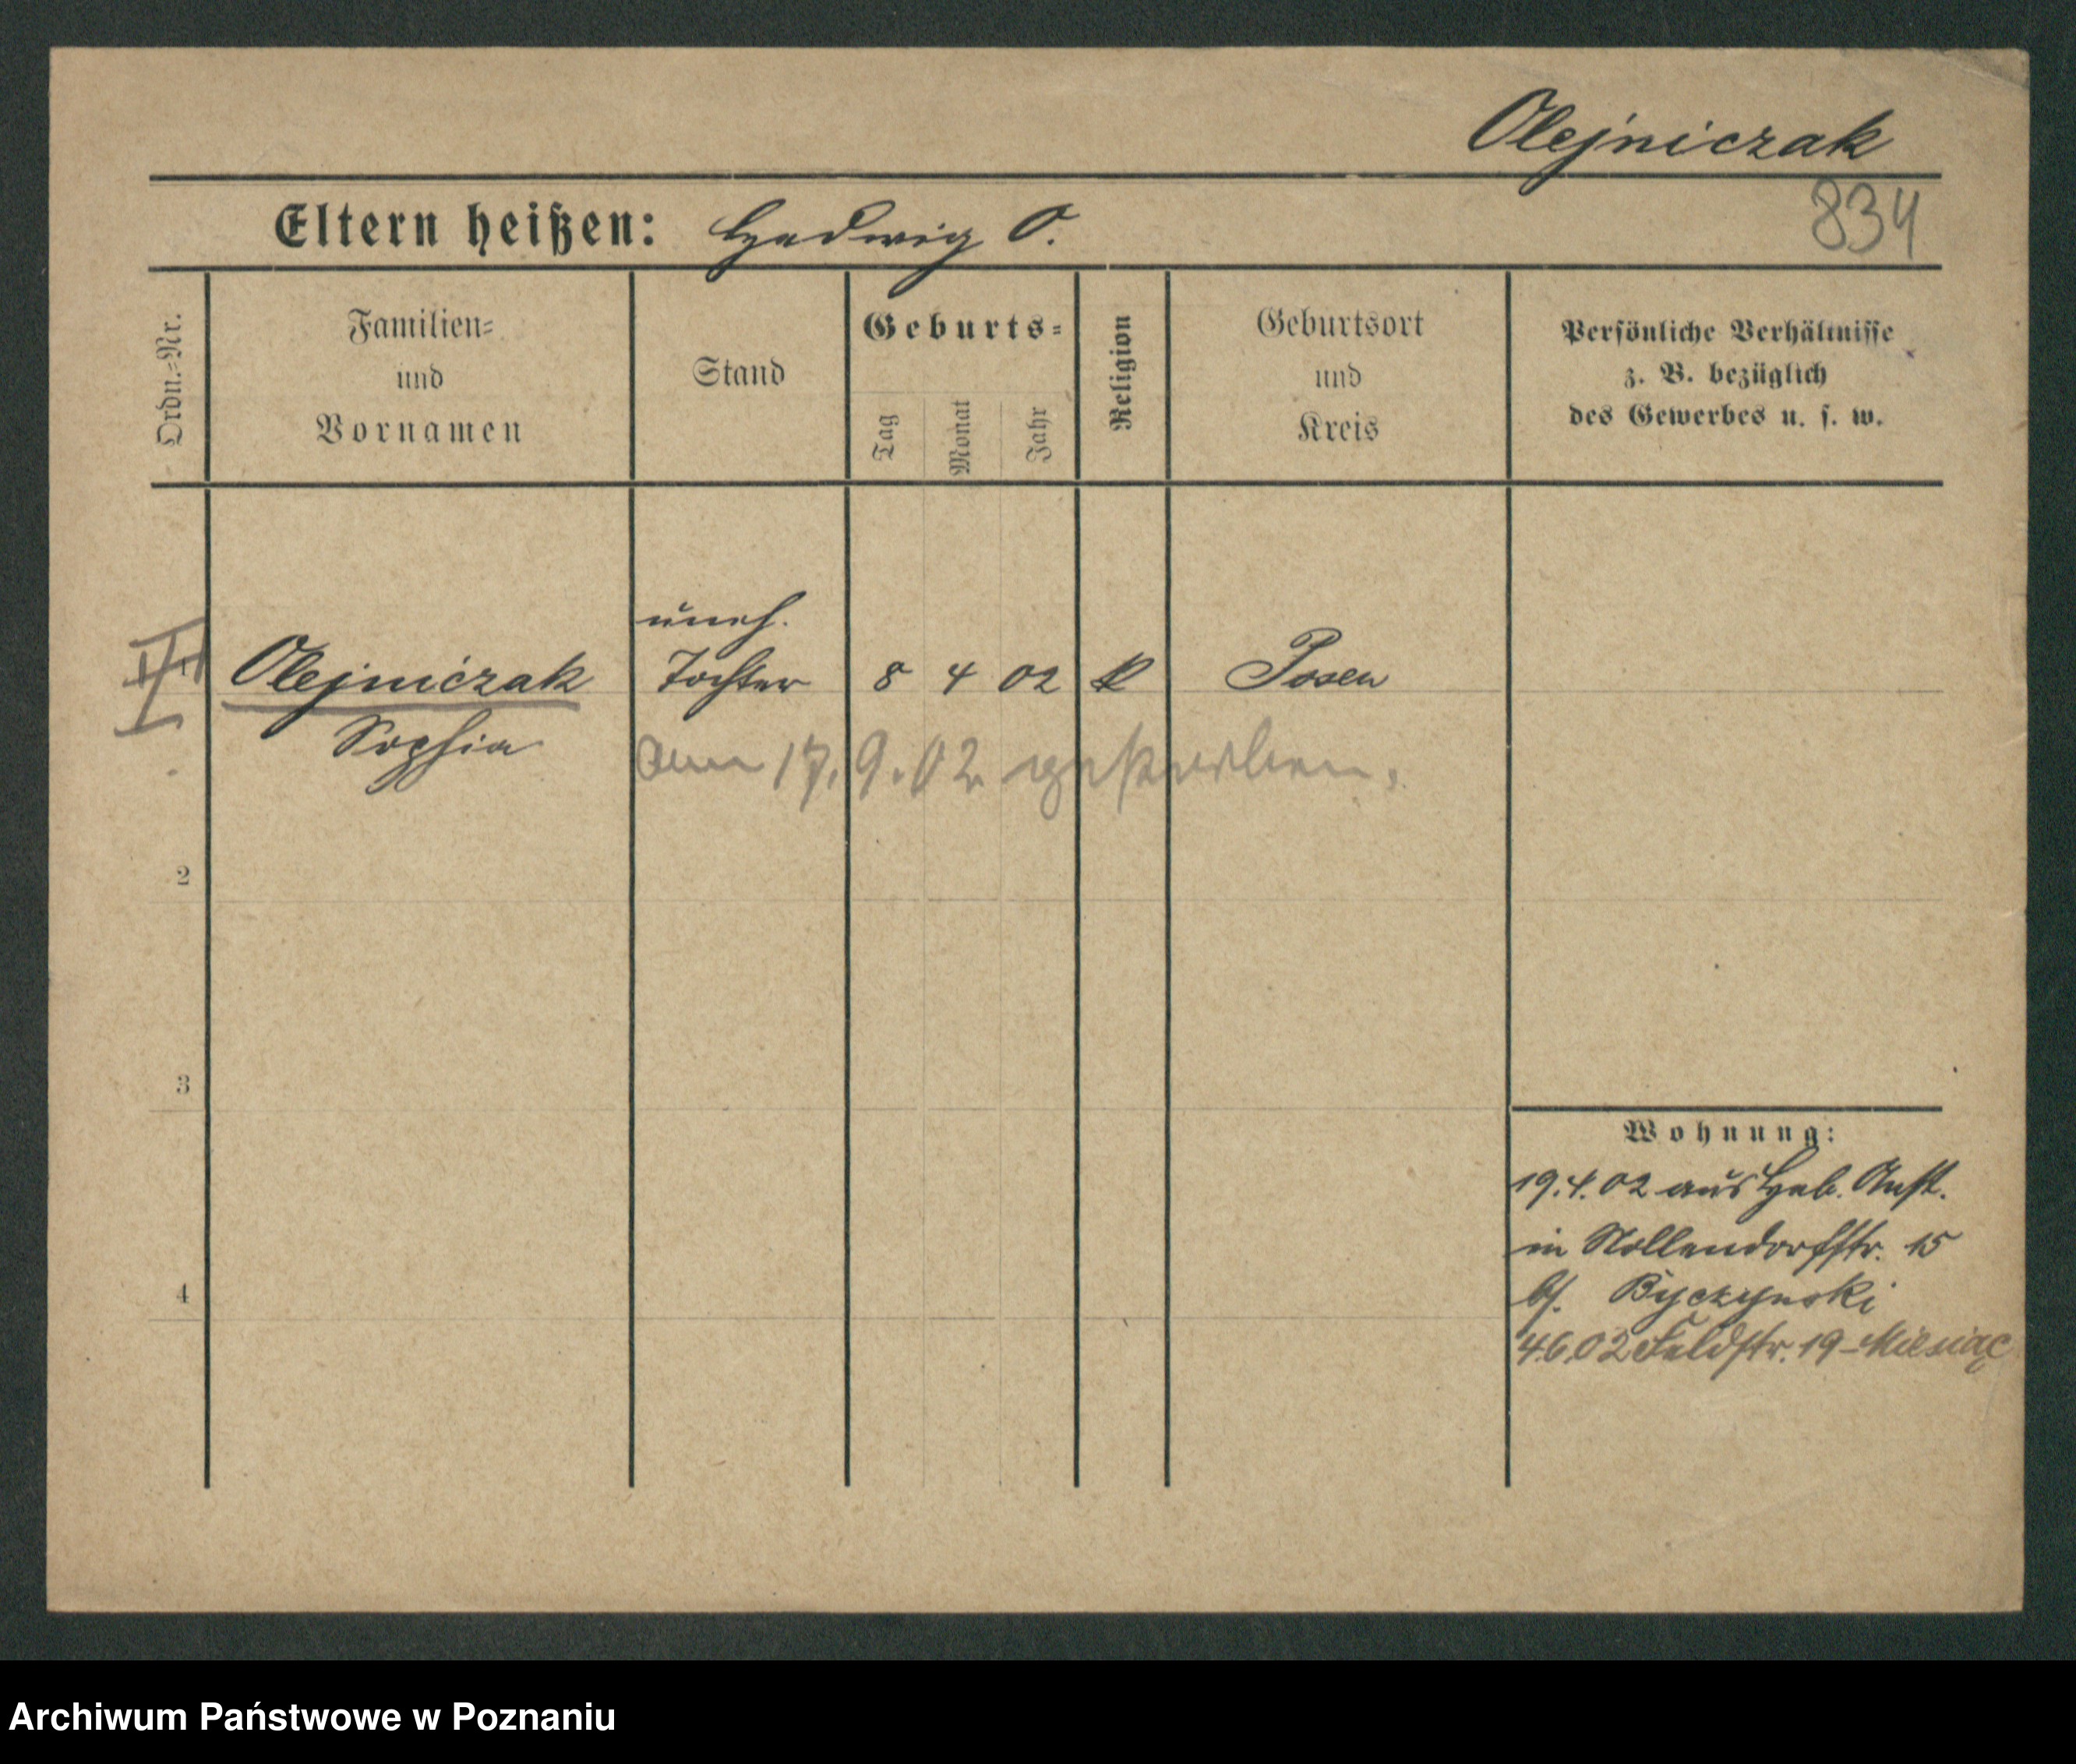 Olejniczak
834
Eltern heißen: Hedwig O.
Ordn.-Nr.
Familien-
und
Vornamen
Stand
Geburts-
Tag
Monat
Jahr
Religion
Geburtsort
und
Kreis
Persönliche Verhältnisse
z. B. bezüglich
des Gewerbes u. s. w.
uneh.
Olejniczak Tochter 8 4 02 k Posen
Sophia
am 17.9.02 gestorben.
2
3
4
Wohnung:
19.4.02 aus Heb. Anst.
in Nollendorfstr. 15
bei Byczynski
4.6.02 Feldstr. 19 - Miesiąc
Archiwum Państwowe w Poznaniu